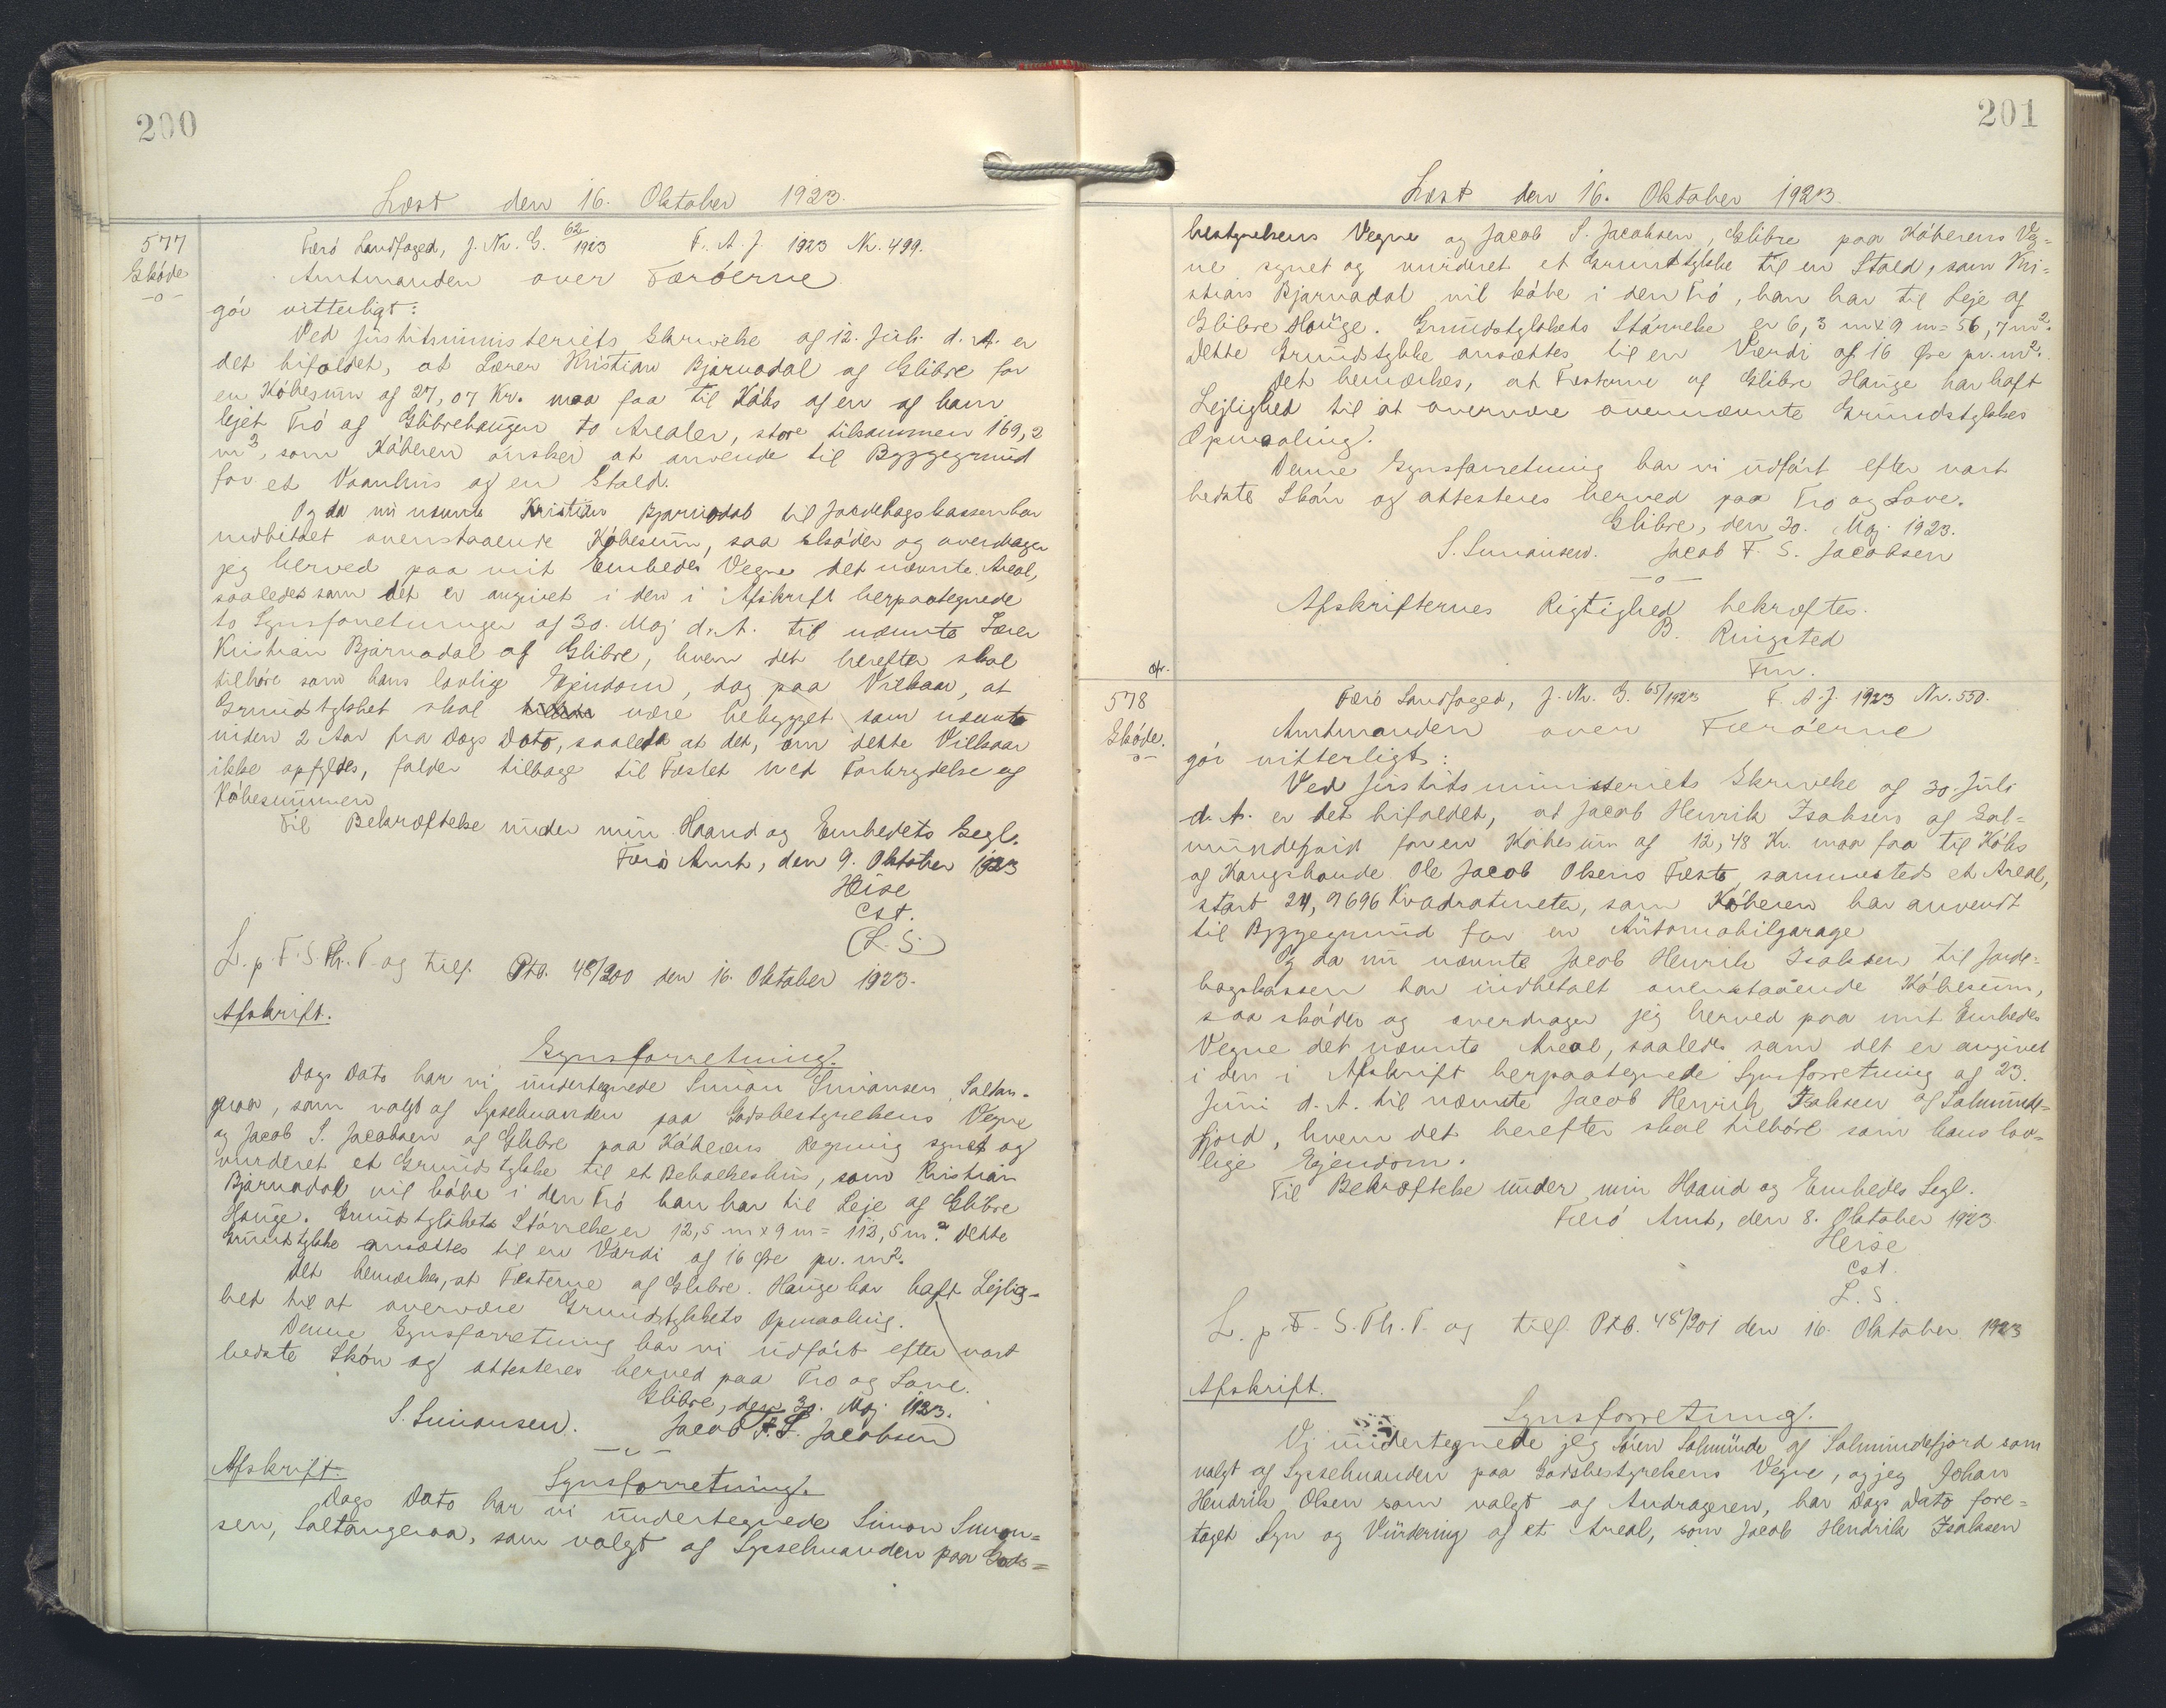 200
Læst den 16. Oktober 1923.
577
Skøde
-o-
Færö Landfoged, J. Nr. G. 62/1923 F. A. J. 1923 Nr. 499.
Amtmanden over Færöerne
gör vitterligt:
Ved Justitsministeriets Skrivelse af 12. Juli d. A. er
det bifaldet, at Lærer Kristian Bjarnadal af Glibre for
en Köbesum af 27,07 Kr. maa faa til Köbs af en af ham
lejet Trö af Glibrehaugen to Arealer, store tilsammen 169,2
m², som Köberen önsker at anvende til Byggegrund
for et Vaanhus og en Stald.
Og da nu nævnte Kristian Bjarnadal til Jordebogskassen har
indbetalt ovenstaaende Köbesum, saa sköder og overdrager
jeg herved paa mit Embedes Vegne det nævnte Areal,
saaledes som det er angivet i den i Afskrift herpaategnede
to Synsforretninger af 30. Maj d. A. til nævnte Lærer
Kristian Bjarnadal af Glibre, hvem det herefter skal
tilhöre som hans lovlige Ejendom, dog paa Vilkaar, at
Grundstykket skal være bebygget som nævnte
inden 2 Aar fra Dags Dato, saaleda at det, om dette Vilkaar
ikke opfyldes, falder tilbage til Fæstet ved Forbrydelse af
Köbesummen
Til Bekræftelse under min Haand og Embedets Segl.
Færö Amt, den 9. Oktober 1923
Heise
cst.
(L. S.)
L. p. F. S. Th. T. og tilf. Ptb. 48/200 den 16. Oktober 1923.
Afskrift.
Synsforretning.
Dags Dato har vi undertegnede Simon Simonsen, Saltan-
graa, som valgt af Sysselmanden paa Godsbestyrelsens Vegne
og Jacob S. Jacobsen af Glibre paa Köberens Regning synet og
vurderet et Grundstykke til et Beboelseshus, som Kristian
Bjarnadal vil köbe i den Trö han har til Leje af Glibre
Hauge. Grundstykkets Störrelse er 12,5 m x 9 m = 112,5 m². Dette
Grundstykke ansættes til en Værdi af 16 Øre pr. m².
Det bemærkes, at Fæsterne af Glibre Hauge har haft Lejlig-
hed til at overvære Grundstykkets Opmaaling.
Denne Synsforretning har vi udfört efter vort
bedste Skön og attesteres herved paa Tro og Love.
Glibre, den 30. Maj 1923.
S. Simonsen. Jacob F. S. Jacobsen
Afskrift.
Synsforretning.
Dags Dato har vi undertegnede Simon Simon=
sen, Saltangeraa, som valgt af Sysselmanden paa Gods=
201
Læst den 16. Oktober 1923.
bestyrelsens Vegne og Jacob S. Jacobsen, Glibre paa Köberens Veg=
ne synet og vurderet et Grundstykke til en Stald, som Kri=
stian Bjarnadal vil köbe i den Trö, han har til Leje af
Glibre Hauge. Grundstykkets Störrelse er 6,3 m x 9 m = 56,7 m².
Dette Grundstykke ansættes til en Værdi af 16 Øre pr. m².
Det bemærkes, at Fæsterne af Glibre Hauge har haft
Lejlighed til at overvære ovennævnte Grundstykkes
Opmaaling.
Denne Synsforretning har vi udfört efter vort
bedste Skön og attesteres herved paa Tro og Love.
Glibre, den 30. Maj 1923.
S. Simonsen. Jacob F. S. Jacobsen
-o-
Afskrifternes Rigtighed bekræftes.
B. Ringsted
Fm.
578
Skøde.
Færö Landfoged, J. Nr. G. 65/1923 F. A. J. 1923 Nr. 550.
Amtmanden over Færöerne
gör vitterligt:
Ved Justitsministeriets Skrivelse af 30. Juli
d. A. er det bifaldet, at Jacob Henrik Isaksen af Sal=
mundefjord for en Köbesum af 12,48 Kr. maa faa til Köbs
af Kongsbonde Ole Jacob Olsens Fæste sammesteds et Areal,
stort 24,9696 Kvadratmeter, som Köberen har anvendt
til Byggegrund for en Automobilgarage
Og da nu nævnte Jacob Henrik Isaksen til Jorde=
bogskassen har indbetalt ovenstaaende Köbesum,
saa sköder og overdrager jeg herved paa mit Embedes
Vegne det nævnte Areal, saaledes som det er angivet
i den i Afskrift herpaategnede Synsforretning af 23.
Juni d. A. til nævnte Jacob Henrik Isaksen af Salmunde=
fjord, hvem det herefter skal tilhöre som hans lov=
lige Ejendom.
Til Bekræftelse under min Haand og Embedes Segl.
Færö Amt, den 8. Oktober 1923.
Heise
cst.
L. S.
L. p. F. S. Th. T. og tilf. Ptb. 48/201 den 16. Oktober 1923
Afskrift.
Synsforretning.
Vi undertegnede jeg Sören Salmunde af Salmundefjord som
valgt af Sysselmanden paa Godsbestyrelsens Vegne, og jeg Johan
Hendrik Olsen som valgt af Andrageren, har Dags Dato fore=
taget Syn og Vurdering af et Areal, som Jacob Hendrik Isaksen